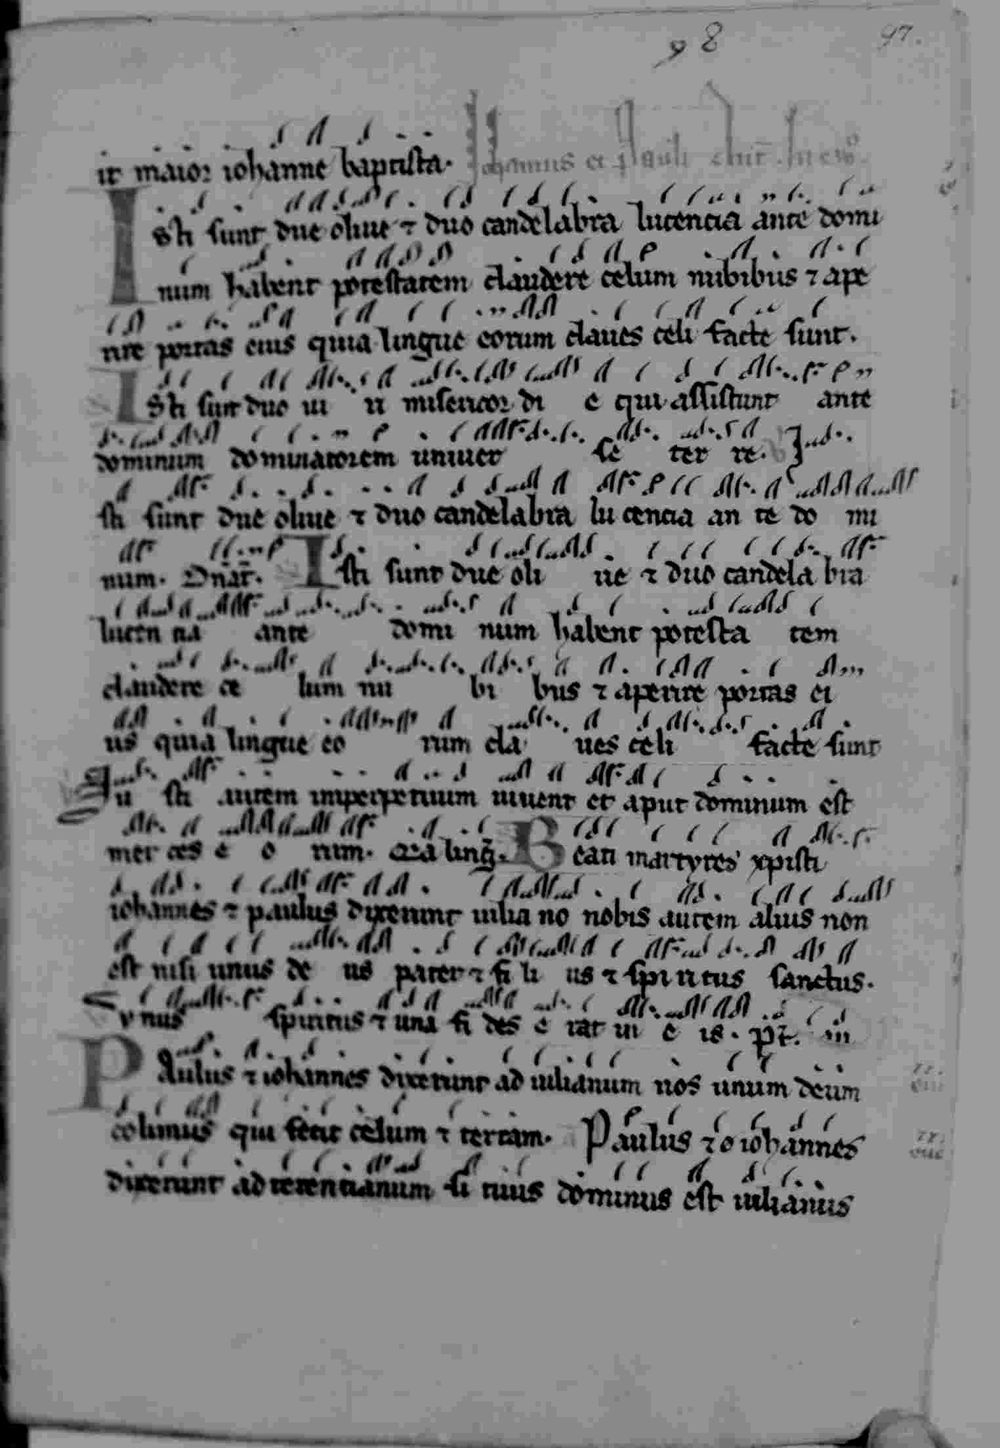 98 97.
it maior iohanne baptista. Iohannis et Pauli
Isti sunt due oliue ⁊ duo candelabra lucencia ante domi
num habent potestatem claudere celum nubibus ⁊ ape
rire portas eius quia lingue eorum claues celi facte sunt.
Isti sunt duo ui ri misericor di e qui assistunt ante
dominum dominatorem uniuer se ter re. I
sti sunt due oliue ⁊ duo candelabra lu cencia an te do mi
num. Isti sunt due oli ue ⁊ duo candela bra
ante domi num habent potesta tem
claudere ce lum nu bi bus ⁊ aperire portas ei
us quia lingue eo rum cla ues celi facte sunt
Iu sti autem imperpetuum uiuent et aput dominum est
mer ces e o rum. Beati martyres xpisti
iohannes ⁊ paulus dixerunt iulia no nobis autem alius non
est nisi unus de us pater ⁊ fi li us ⁊ spiritus sanctus.
Vnus spiritus ⁊ una fi des e rat in e is.
Paulus ⁊ iohannes dixerunt ad iulianum nos unum deum
colimus qui fecit celum ⁊ terram. Paulus ⁊ iohannes
dixerunt ad terentianum si tuus dominus est iulianus